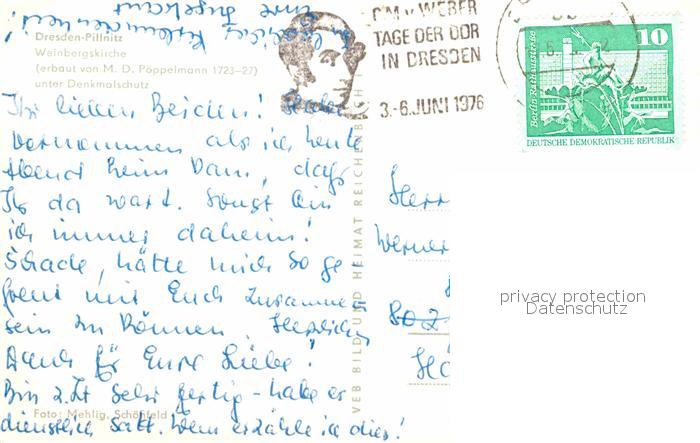 Dresden-Pillnitz
Weinbergskirche
(erbaut von M. D. Pöppelmann 1723–27)
unter Denkmalschutz
Ihr lieben Beiden!
vernommen als ich heute
Abend heim kam, daß
Ihr da wart. Sonst bin
ich immer daheim!
Schade, hätte mich so ge
freut mit Euch zusammen
sein zu können. Herzlichen
Dank für Eure Liebe!
Bin z.Zt sehr fertig – habe es
dienstlich satt. Wem erzähle ich dies!
Foto: Mehlig, Schönfeld
Eure Ingeborg
VEB BILD UND HEIMAT REICHENBACH
C M v WEBER
TAGE DER DDR
IN DRESDEN
3.-6. JUNI 1976
Berlin, Rathausstraße
10
DEUTSCHE DEMOKRATISCHE REPUBLIK
Herr
Werner
802
privacy protection
Datenschutz